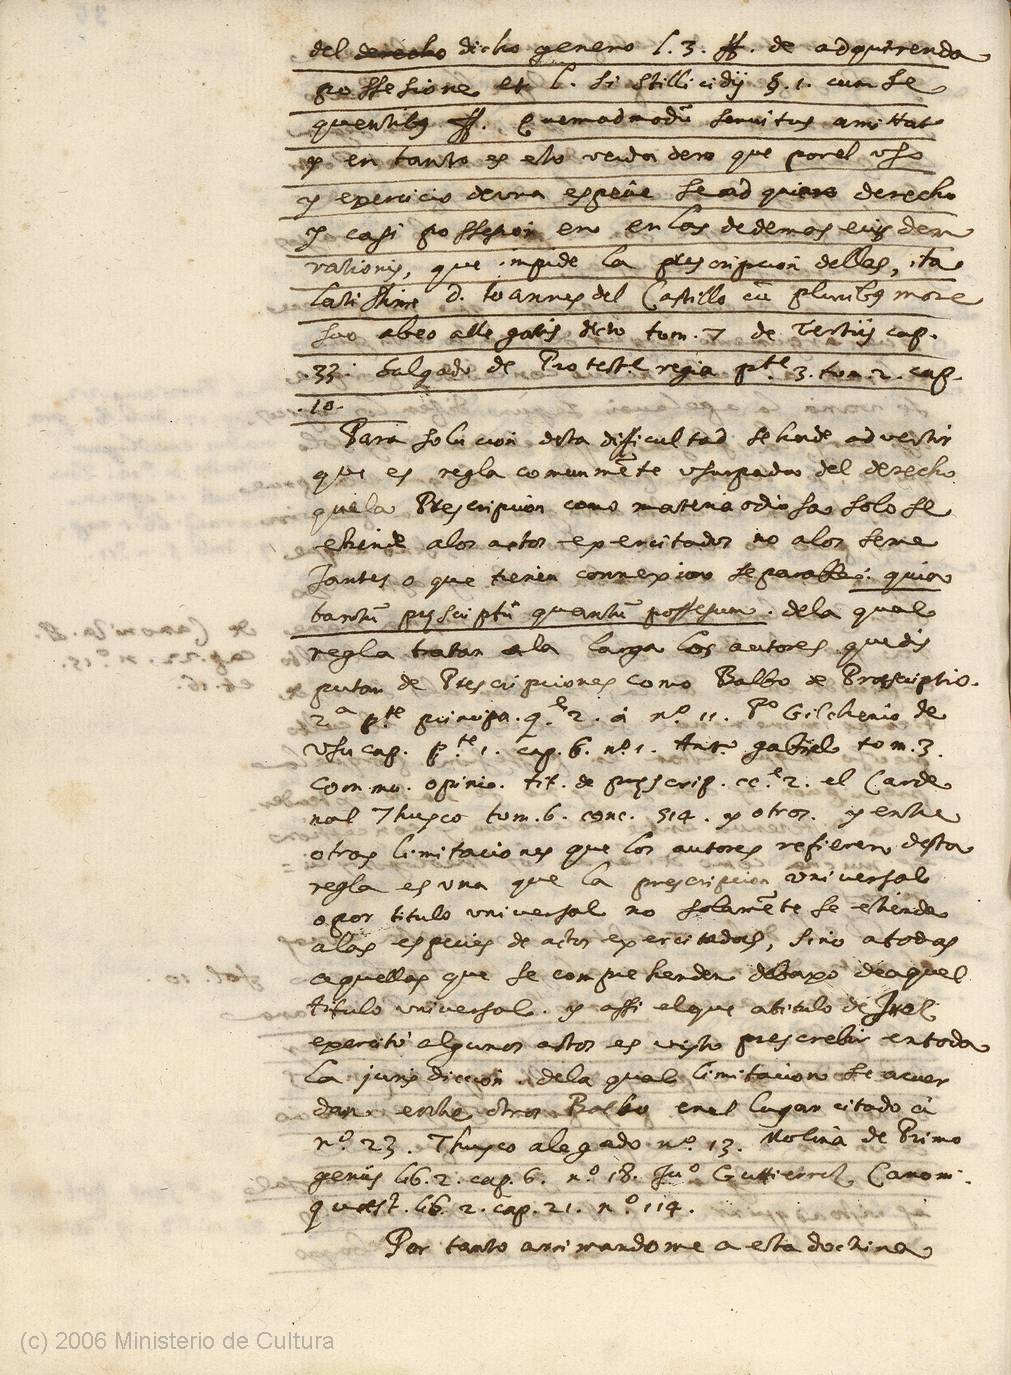 del derecho dicho genero l. 3. ff. de adquirenda
possessione et l. si stillicidij §. 1. cum se
quentibus ff. Quemadmodũ servitus amittat
y en tanto es esto verdadero que por el uso
y exercicio de una espeçie se adquiere derecho
y casi possesion en en las de demas eius dem
rationis, que impide la prescripcion dellas, ita
latissime D. Ioannes del Castillo cũ pluribus more
suo ab eo alle gatis dicto tom. 7 de Tertiis cap.
33. Salgado de Protect.e regia p.te 3. tom. 2. cap.
10.
Para solucion desta difficultad se ha de advertir
que es regla comunmẽte usurpada del derecho
que la Prescripcion como materia odiosa solo se
etiende a los actos exercitados no a los seme
jantes o que tienen connexion separable: quia
tantũ prescriptũ quantũ possessum. de la qual
regla tratan a la larga los autores que dis
putan de Prescripciones como Balbo de Praescriptio.
2.ª p.te principa. q.e 2. á n.º 11. P.º Gilchenio de
Usucap. p.te 1. cap. 6. n.º 1. Ant.º gabriel tom. 3.
commu. opinio. tit. de praescrip. cc.e 2. el Carde
nal Thusco tom. 6. conc. 514. y otros. y entre
otras limitaciones que los autores refieren desta
regla es una que la prescripcion universal
o por titulo universal no solamẽte se etiende
a las especies de actos exercitados, sino a todas
aquellas que se comprehenden debaxo de aquel
titulo universal. y assi el que a titulo de
exercitó algunos actos es visto prescrebir en toda
la juris diccion. de la qual limitacion se acuer
dan entre otros Balbo en el lugar citado á
n.º 23. Thusco alegado n.º 13. Molina de Primo
geniis lib. 2. cap. 6. n.º 18. Ju.º Guttierrez Canoni.
quaest. lib. 2. cap. 21. n.º 114.
Por tanto arrimandome a esta doctrina
(c) 2006 Ministerio de Cultura